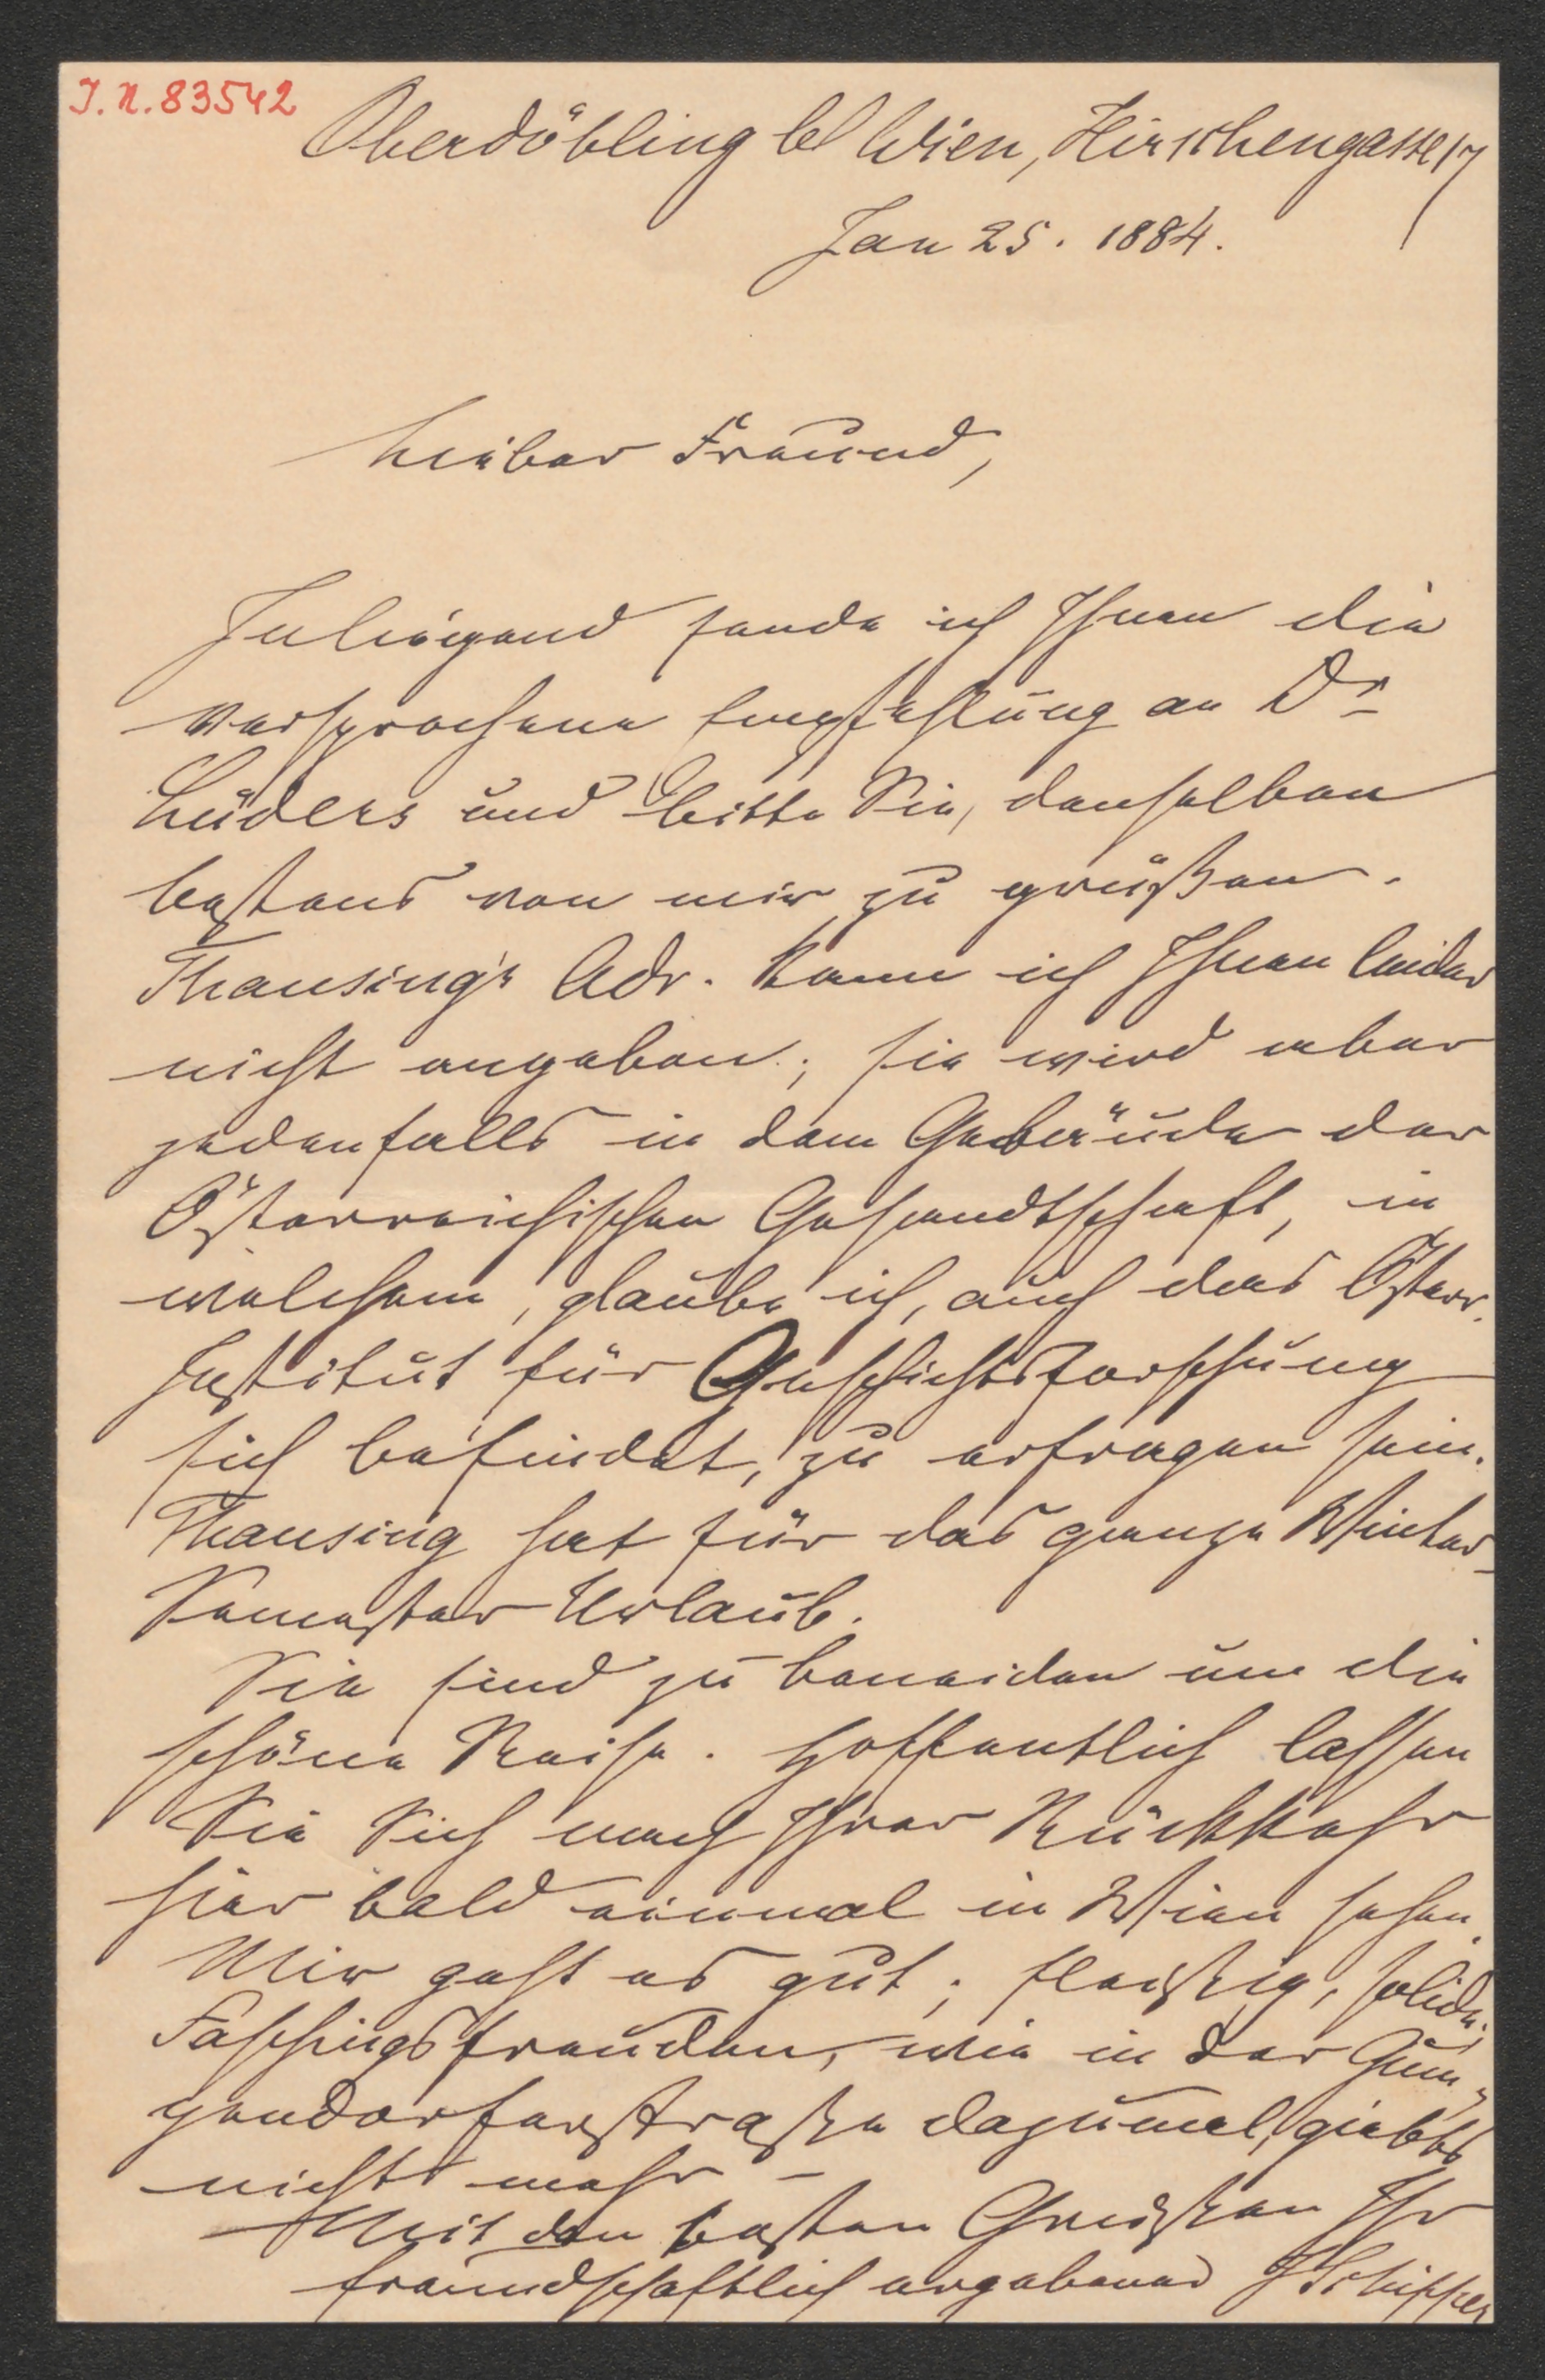 J. N. 83542
Oberdöbling bei Wien, Hirschengasse 17
Jan 25. 1884.
Lieber Freund,
Inliegend sende ich Ihnen die
versprochene Empfehlung an Dr
Lüders und bitte Sie, denselben
bestens von mir zu grüßen.
Thausing's Adr. kann ich Ihnen leider
nicht angeben; sie wird aber
jedenfalls in dem Gebäude der
Österreichischen Gesandtschaft, in
welchem, glaube ich, auch das Österr.
Institut für Geschichtsforschung
sich befindet, zu erfragen sein.
Thausing hat für das ganze Winter-
Semester Urlaub.
Sie sind zu beneiden um die
schöne Reise. Hoffentlich lassen
Sie Sich nach Ihrer Rückkehr
hier bald einmal in Wien sehen.
Mir geht es gut; fleißig, solide;
Faschingsfreuden, wie in der Gum-
pendorferstraße dazumal, giebts
nicht mehr –
Mit den besten Grüßen Ihr
freundschaftlich ergebener J Schipper